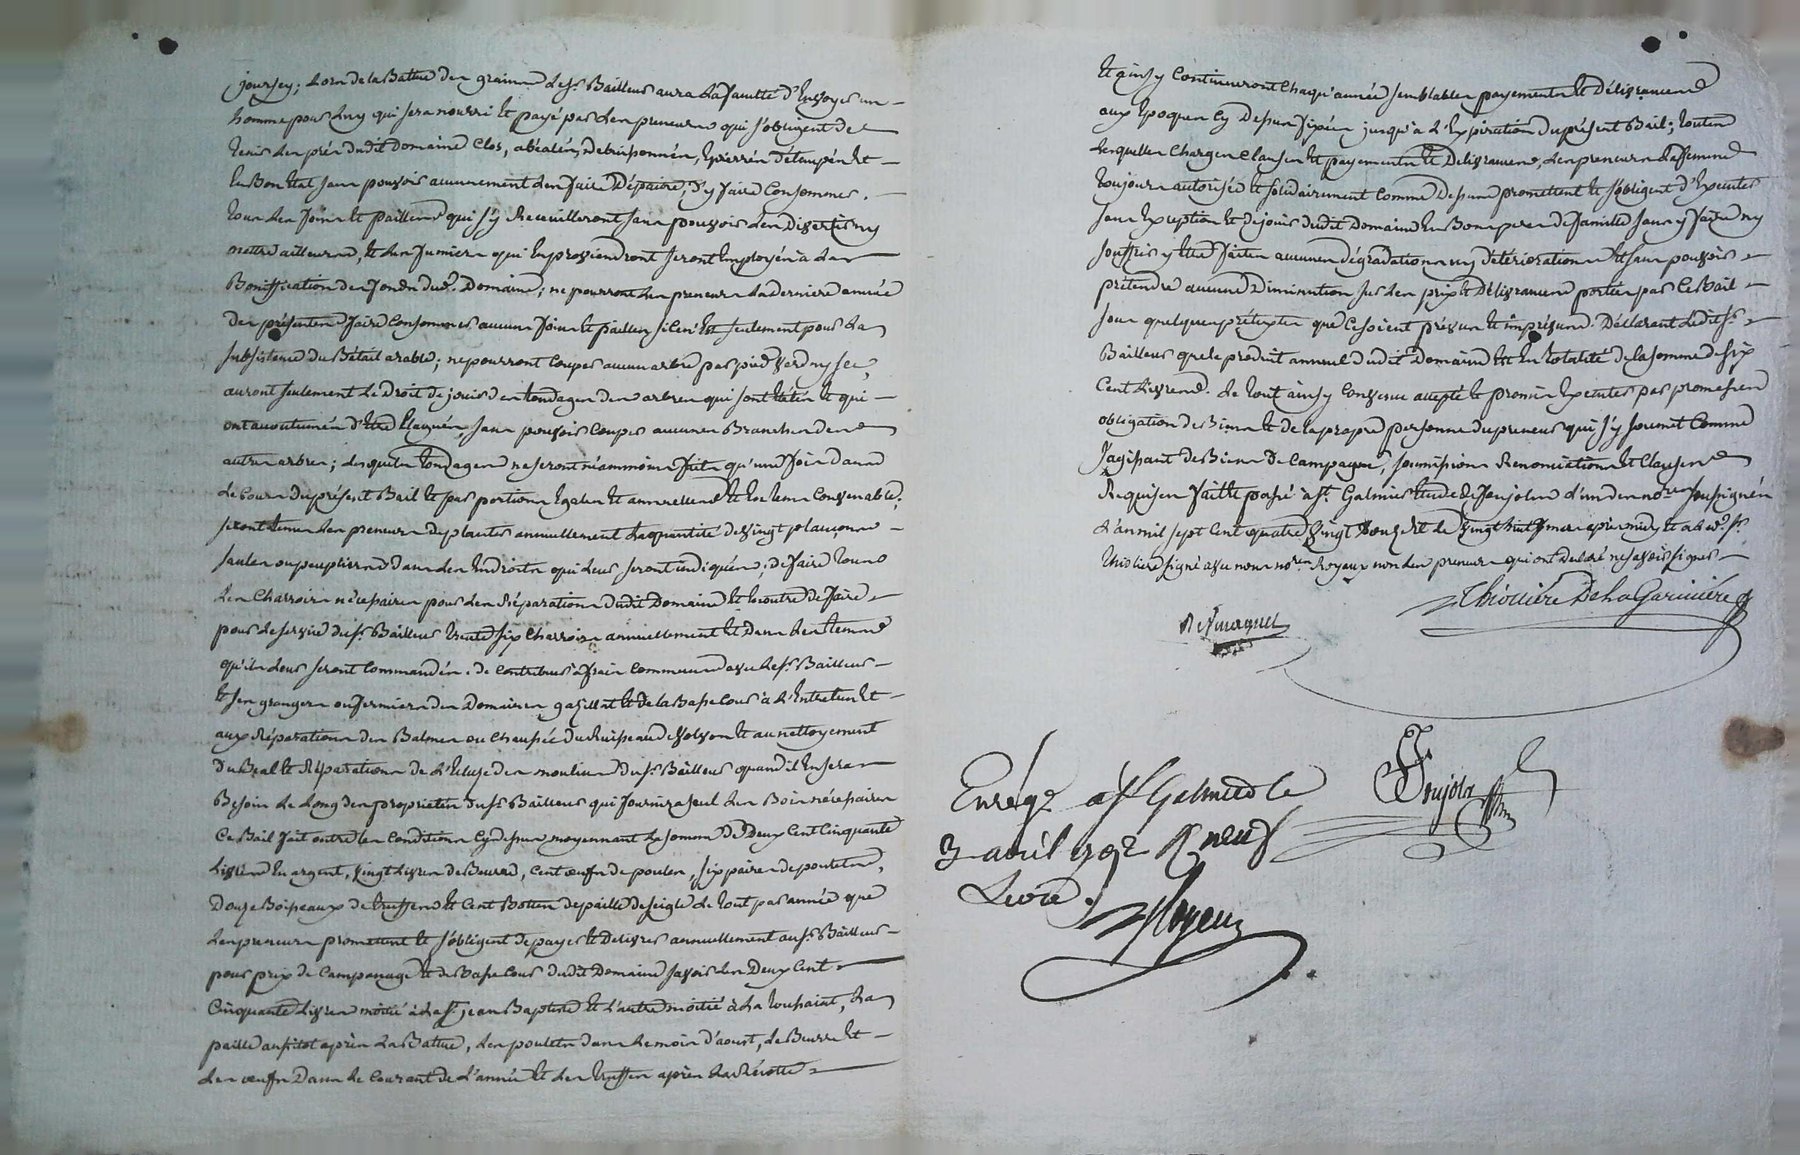 lors de la Batture des grains led. Sr. Bailleur aura la faculté d'Envoyer un
homme pour luy qui sera nourri et payé par les preneurs qui s'obligent de
tenir les prés dudit Domaine Clos, abéalés, debuissonnés, Epierrés détaupés et
En Bon Etat sans pouvoir aucunement les faire Dépaitre, d'y faire Consommer
tous les foins et pailles qui s'y Receuilleront sans pouvoir les Divertir ny
mettre ailleurs, et les fumiers qui En proviendront seront Employés à la
Bonification des fonds dud. Domaine; ne pourront les preneurs la derniere année
des présentes faire Consommer aucuns foins et pailles si ce n'Est seulement pour la
subsistance du Bétail arable; ne pourront Couper aucun arbre par pied verd ny sec,
auront seulement le Droit de jouir des tondages des arbres qui sont têtés et qui
ont accoutumés d'Etre Elagués, sans pouvoir Couper aucunes Branches des
autres arbres; lesquels tondages ne seront néanmoins faits qu'une fois dans
le Cours du présent Bail et par portions Egales et annuelles et En tems Convenable;
seront tenus les preneurs de planter annuellement la quantité de vingt plançons
saules ou peupliers dans les Endroits qui leur seront indiqués; de faire tous
les Charrois nécéssaires pour les Réparations dudit Domaine et En outre de faire
pour le service dud. Sr. Bailleur trente six Charrois annuellement et Dans les tems
qu'ils leur seront Commandés. de Contribuer à frais Communs avec led. Sr. Bailleur
et ses grangers ou fermiers des Domaines et de la Basse Cour à l'Entretien Et
aux Réparations des Balmes ou Chaussée du Ruisseau et au nettoyement
du Béal et Réparations de l'Ecluze des moulins dud. Sr. Bailleur quand il En sera
Besoin le Long des propriétés dud. Sr. Bailleur qui fournira seul les Bois nécéssaires
Ce Bail fait outre les Conditions Cy dessus moyennant la somme de Deux Cent Cinquante
Livres En argent, vingt Livres de Beurre, Cent œufs de poules, six paires de poulets,
Douze Boisseaux de truffes et Cent Bottes de paille de seigle le tout par année que
les preneurs promettent et s'obligent de payer et Delivrer annuellement aud. Sr. Bailleur
pour prix de Campanage et de Basse Cour dudit Domaine savoir les Deux Cent
Cinquante Livres moitié à la St. jean Baptiste et l'autre moitié à la toussaint, la
paille aussitot après la Batture, les poulets dans le mois d'aoust, le Beurre Et
les œufs Dans le Courant de l'année et les truffes après la Récolte
Et ainsy Continueront Chaqu'année semblables payements et Délivrances
aux Epoques Cy Dessus fixées jusqu'à l'Expiration du présent Bail; toutes
lesquelles Charges Clauses et payements et Delivrances, les preneurs la femme
toujours autorisée et solidairement Comme Dessus promettent et s'obligent d'Executer
sans Exception et de jouir dudit Domaine En Bons peres de famille sans y faire ny
souffrir y Etre faites aucunes dégradations ny détériorations Et sans pouvoir
prétendre aucune Diminution sur les prix et Délivrances portés par Ce Bail
sous quelques prétextes que Ce soient prévus et imprévus. Déclarant ledit Sr.
Bailleur que le produit annuel dudit Domaine Est En totalité de la somme de six
Cent Livres. Le tout ainsy Convenu accepté et promis Executer par promesses
obligation de Biens et de la propre personne du preneur qui s'y soumet Comme
s'agissant de Biens De Campagne, soumissions Renonciations et Clauses
Requises fait et passé à St. Galmier Etude de Poujols l'un des nores. soussignés
L'an mil sept Cent quatre vingt Douze Et le vingt huit mars après midy et a led. Sr.
Thiolliere signé avec nous nores. Royaux non les preneurs qui ont Déclaré ne savoir signer
Thiolliere De La Garinière
Enrégé. à St Galmier le
3 avril 1792 R neuf
Livres.
Poujols